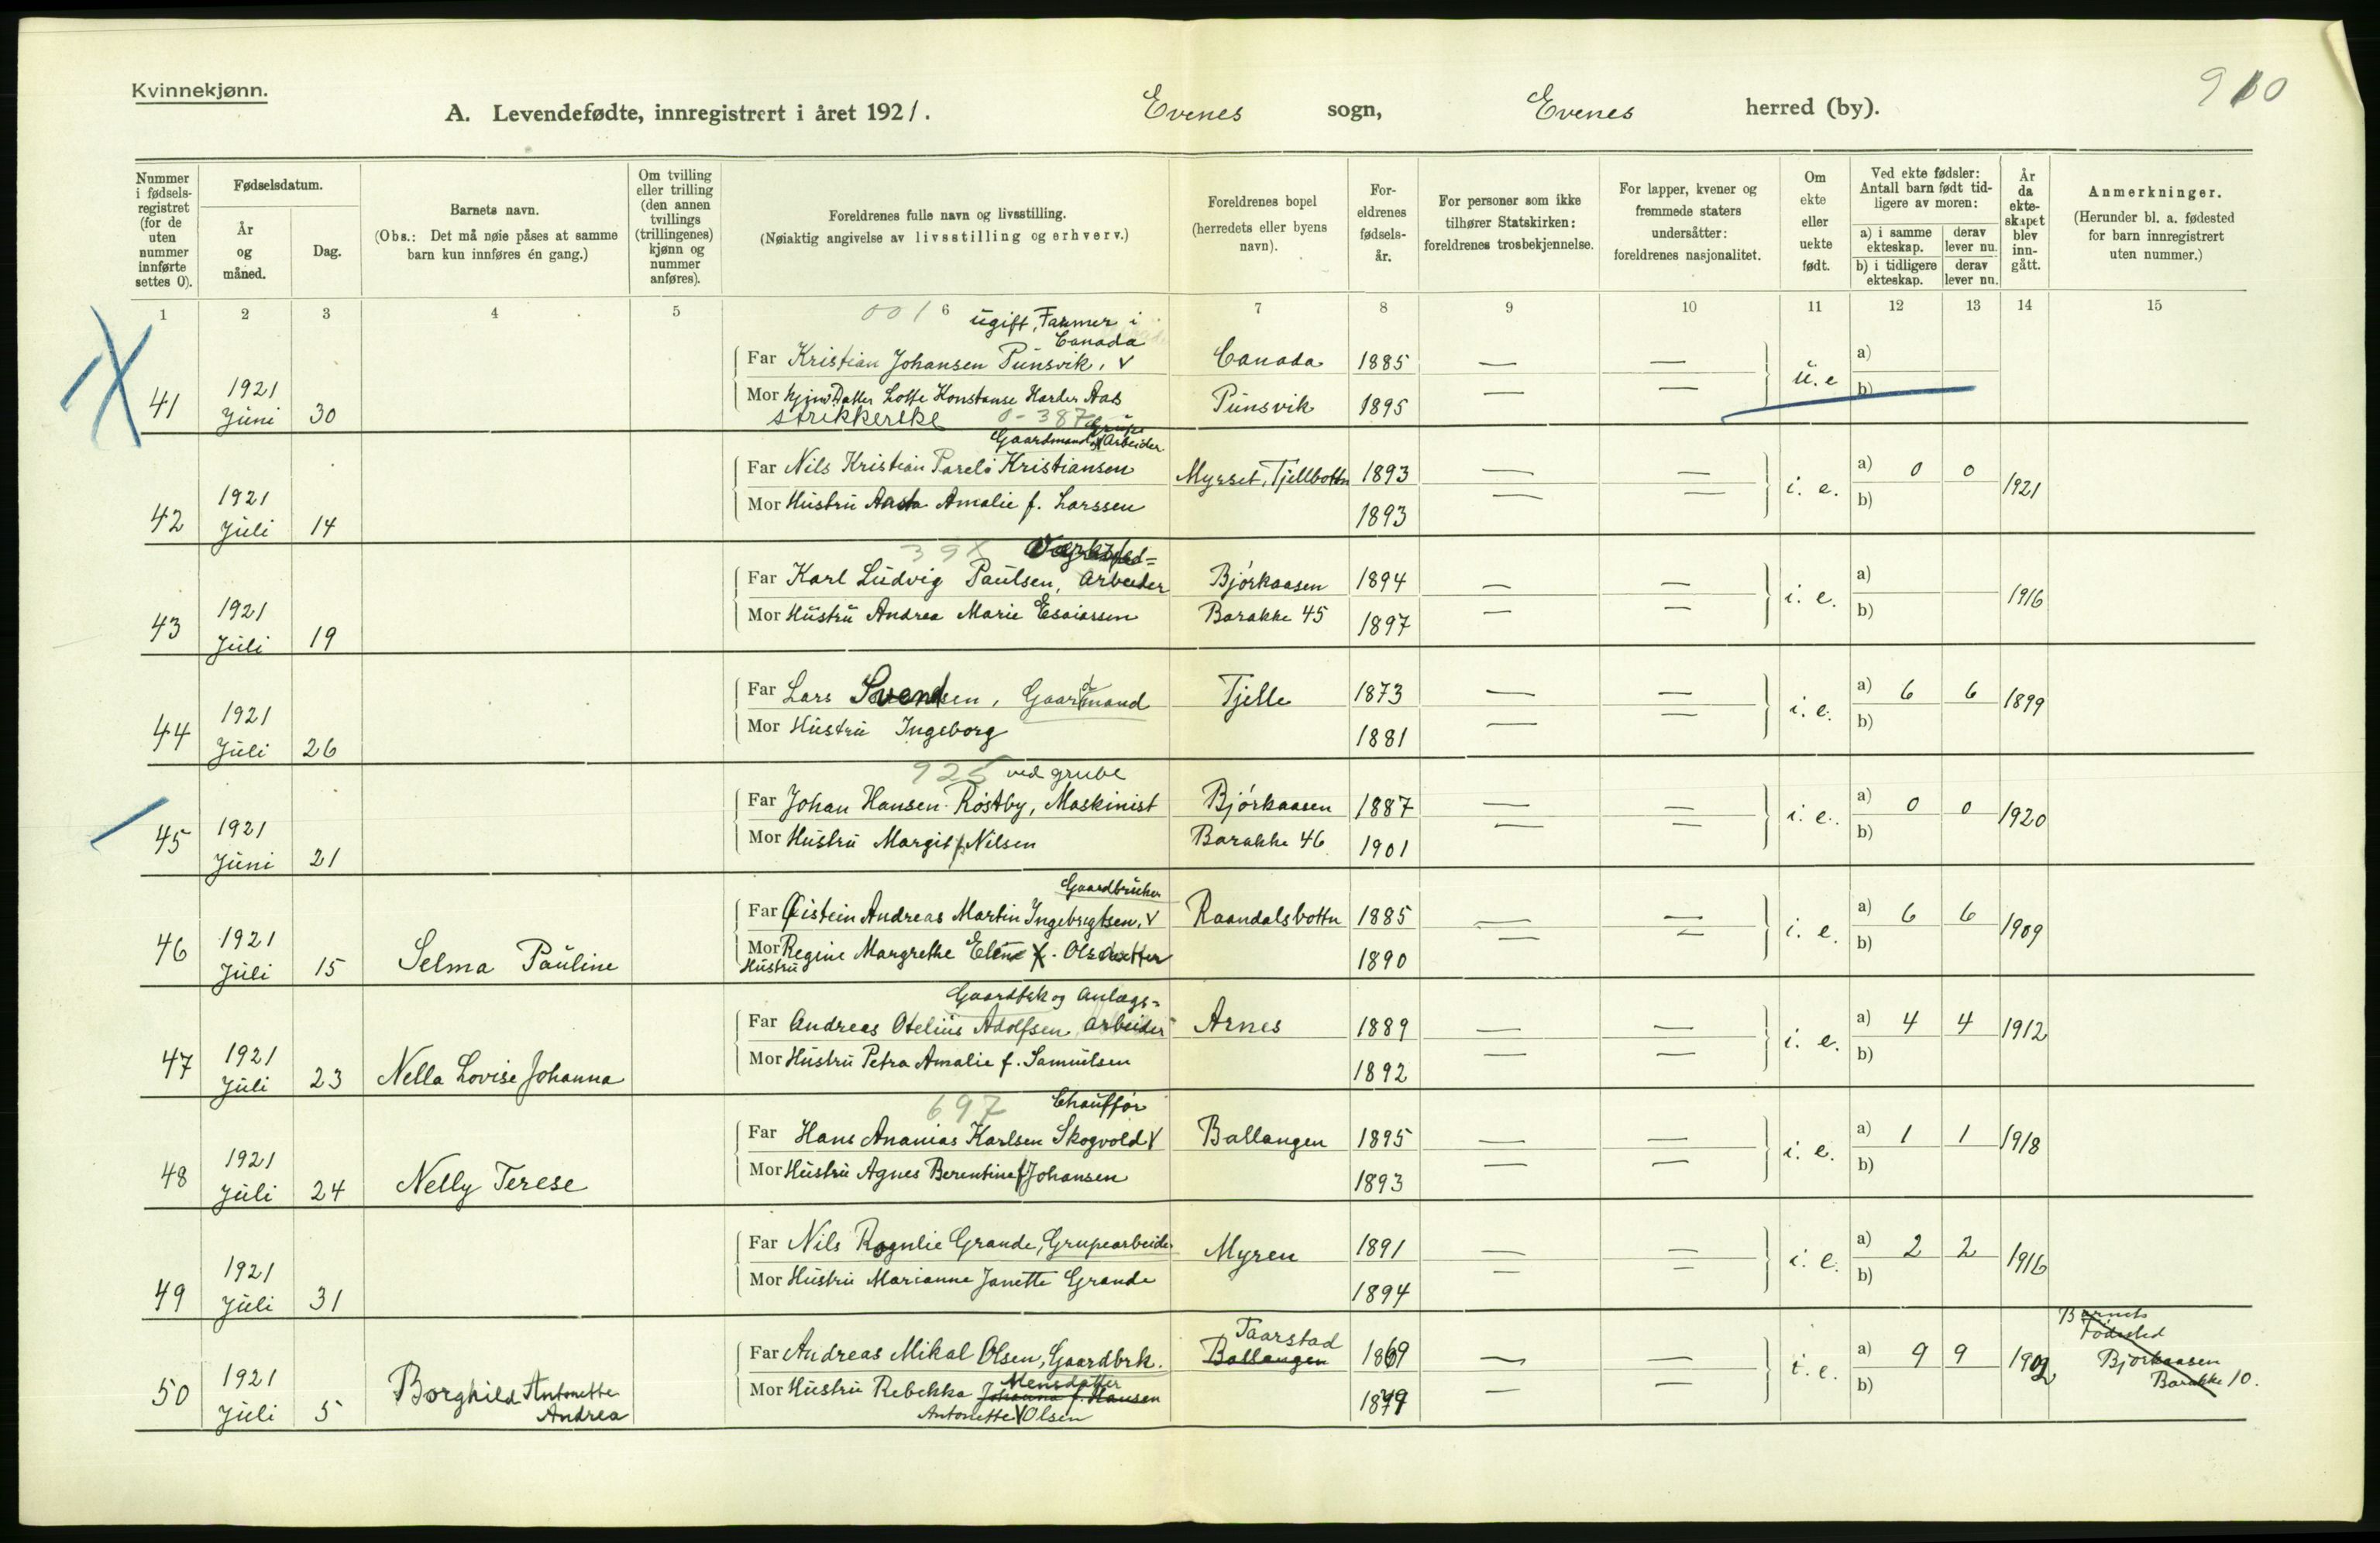 Kvinnekjønn.
910
A. Levendefødte, innregistrert i året 1921.
Evenes sogn, Evenes herred (by).
Nummer i fødsels-registret (for de uten nummer innførte settes 0).
Fødselsdatum.
År og måned.
Dag.
Barnets navn.
(Obs.: Det må nøie påses at samme barn kun innføres én gang.)
Om tvilling eller trilling (den annen tvillings (trillingenes) kjønn og nummer anføres).
Foreldrenes fulle navn og livsstilling.
(Nøiaktig angivelse av livsstilling og erhverv.)
Foreldrenes bopel (herredets eller byens navn).
For-eldrenes fødsels-år.
For personer som ikke tilhører Statskirken: foreldrenes trosbekjennelse.
For lapper, kvener og fremmede staters undersåtter: foreldrenes nasjonalitet.
Om ekte eller uekte født.
Ved ekte fødsler: Antall barn født tid-ligere av moren:
a) i samme ekteskap. derav lever nu.
b) i tidligere ekteskap. derav lever nu.
År da ekte-skapet blev inn-gått.
Anmerkninger.
(Herunder bl. a. fødested for barn innregistrert uten nummer.)
1 2 3 4 5 6 7 8 9 10 11 12 13 14 15
001 ugift, Farmer i Canada
Far Kristian Johansen Pünsvik, V Canada 1885 — — a)
41 1921 Jüni 30 Mor Lotte Konstanse Harder Aas Pünsvik 1895 — — ü. e b)
strikkerske 0-387
Gaardmand Arbeider
Far Nils Kristian Kristiansen Myrset, Tjellbotn 1893 — — a) 0 0
42 1921 Jüli 14 Mor Hüstrü Aasta Amalie f. Larssen 1893 — — i. e. b) 1921
39X
Far Karl Lüdvig Paülsen, Arbeider Bjørkaasen 1894 — — a)
43 1921 Jüli 19 Mor Hüstrü Andrea Marie Esaiassen Barakke 45 1897 — — i. e. b) 1916
Far Lars Svendsen, Gaardmand Tjelle 1873 — — a) 6 6
44 1921 Jüli 26 Mor Hüstrü Ingeborg 1881 — — i. e. b) 1899
925 ved grube
Far Johan Hansen Røstby, Maskinist Bjørkaasen 1887 — — a) 0 0
45 1921 Jüni 21 Mor Hüstrü Margit f. Nilsen Barakke 46 1901 — — i. e. b) 1920
Gaardbrüker
Far Øistein Andreas Martin Ingebrigtsen, V Raandalsbotn 1885 — — a) 6 6
46 1921 Jüli 15 Selma Paüline Mor Regine Margrethe Eline f. Olsdatter 1890 — — i. e. b) 1909
Hüstrü
Gaardbrk og Anlægs=
Far Andreas Otelius Adolfsen arbeider Arnes 1889 — — a) 4 4
47 1921 Jüli 23 Nella Lovise Johanna Mor Hüstrü Petra Amalie f. Samüelsen 1892 — — i. e. b) 1912
697 Chauffør
Far Hans Ananias Karlsen Skogvold V Ballangen 1895 — — a) 1 1
48 1921 Jüli 24 Nelly Terese Mor Hüstrü Agnes Berentine f. Johansen 1893 — — i. e. b) 1918
Far Nils Rognlie Grande, Grupearbeider Myren 1891 — — a) 2 2
49 1921 Jüli 31 Mor Hüstrü Marianne Janette Grande 1894 — — i. e. b) 1916
Far Andreas Mikal Olsen, Gaardbrk. Taarstad Ballangen 1869 — — a) 9 9 Barnets Fødested
50 1921 Jüli 5 Borghild Antonette Andrea Mor Hüstrü Rebekka Johanna f. Hansen Mensdatter 1879 — — i. e. b) 1902 Bjørkaasen Barakke 10.
Antonette V Olsen